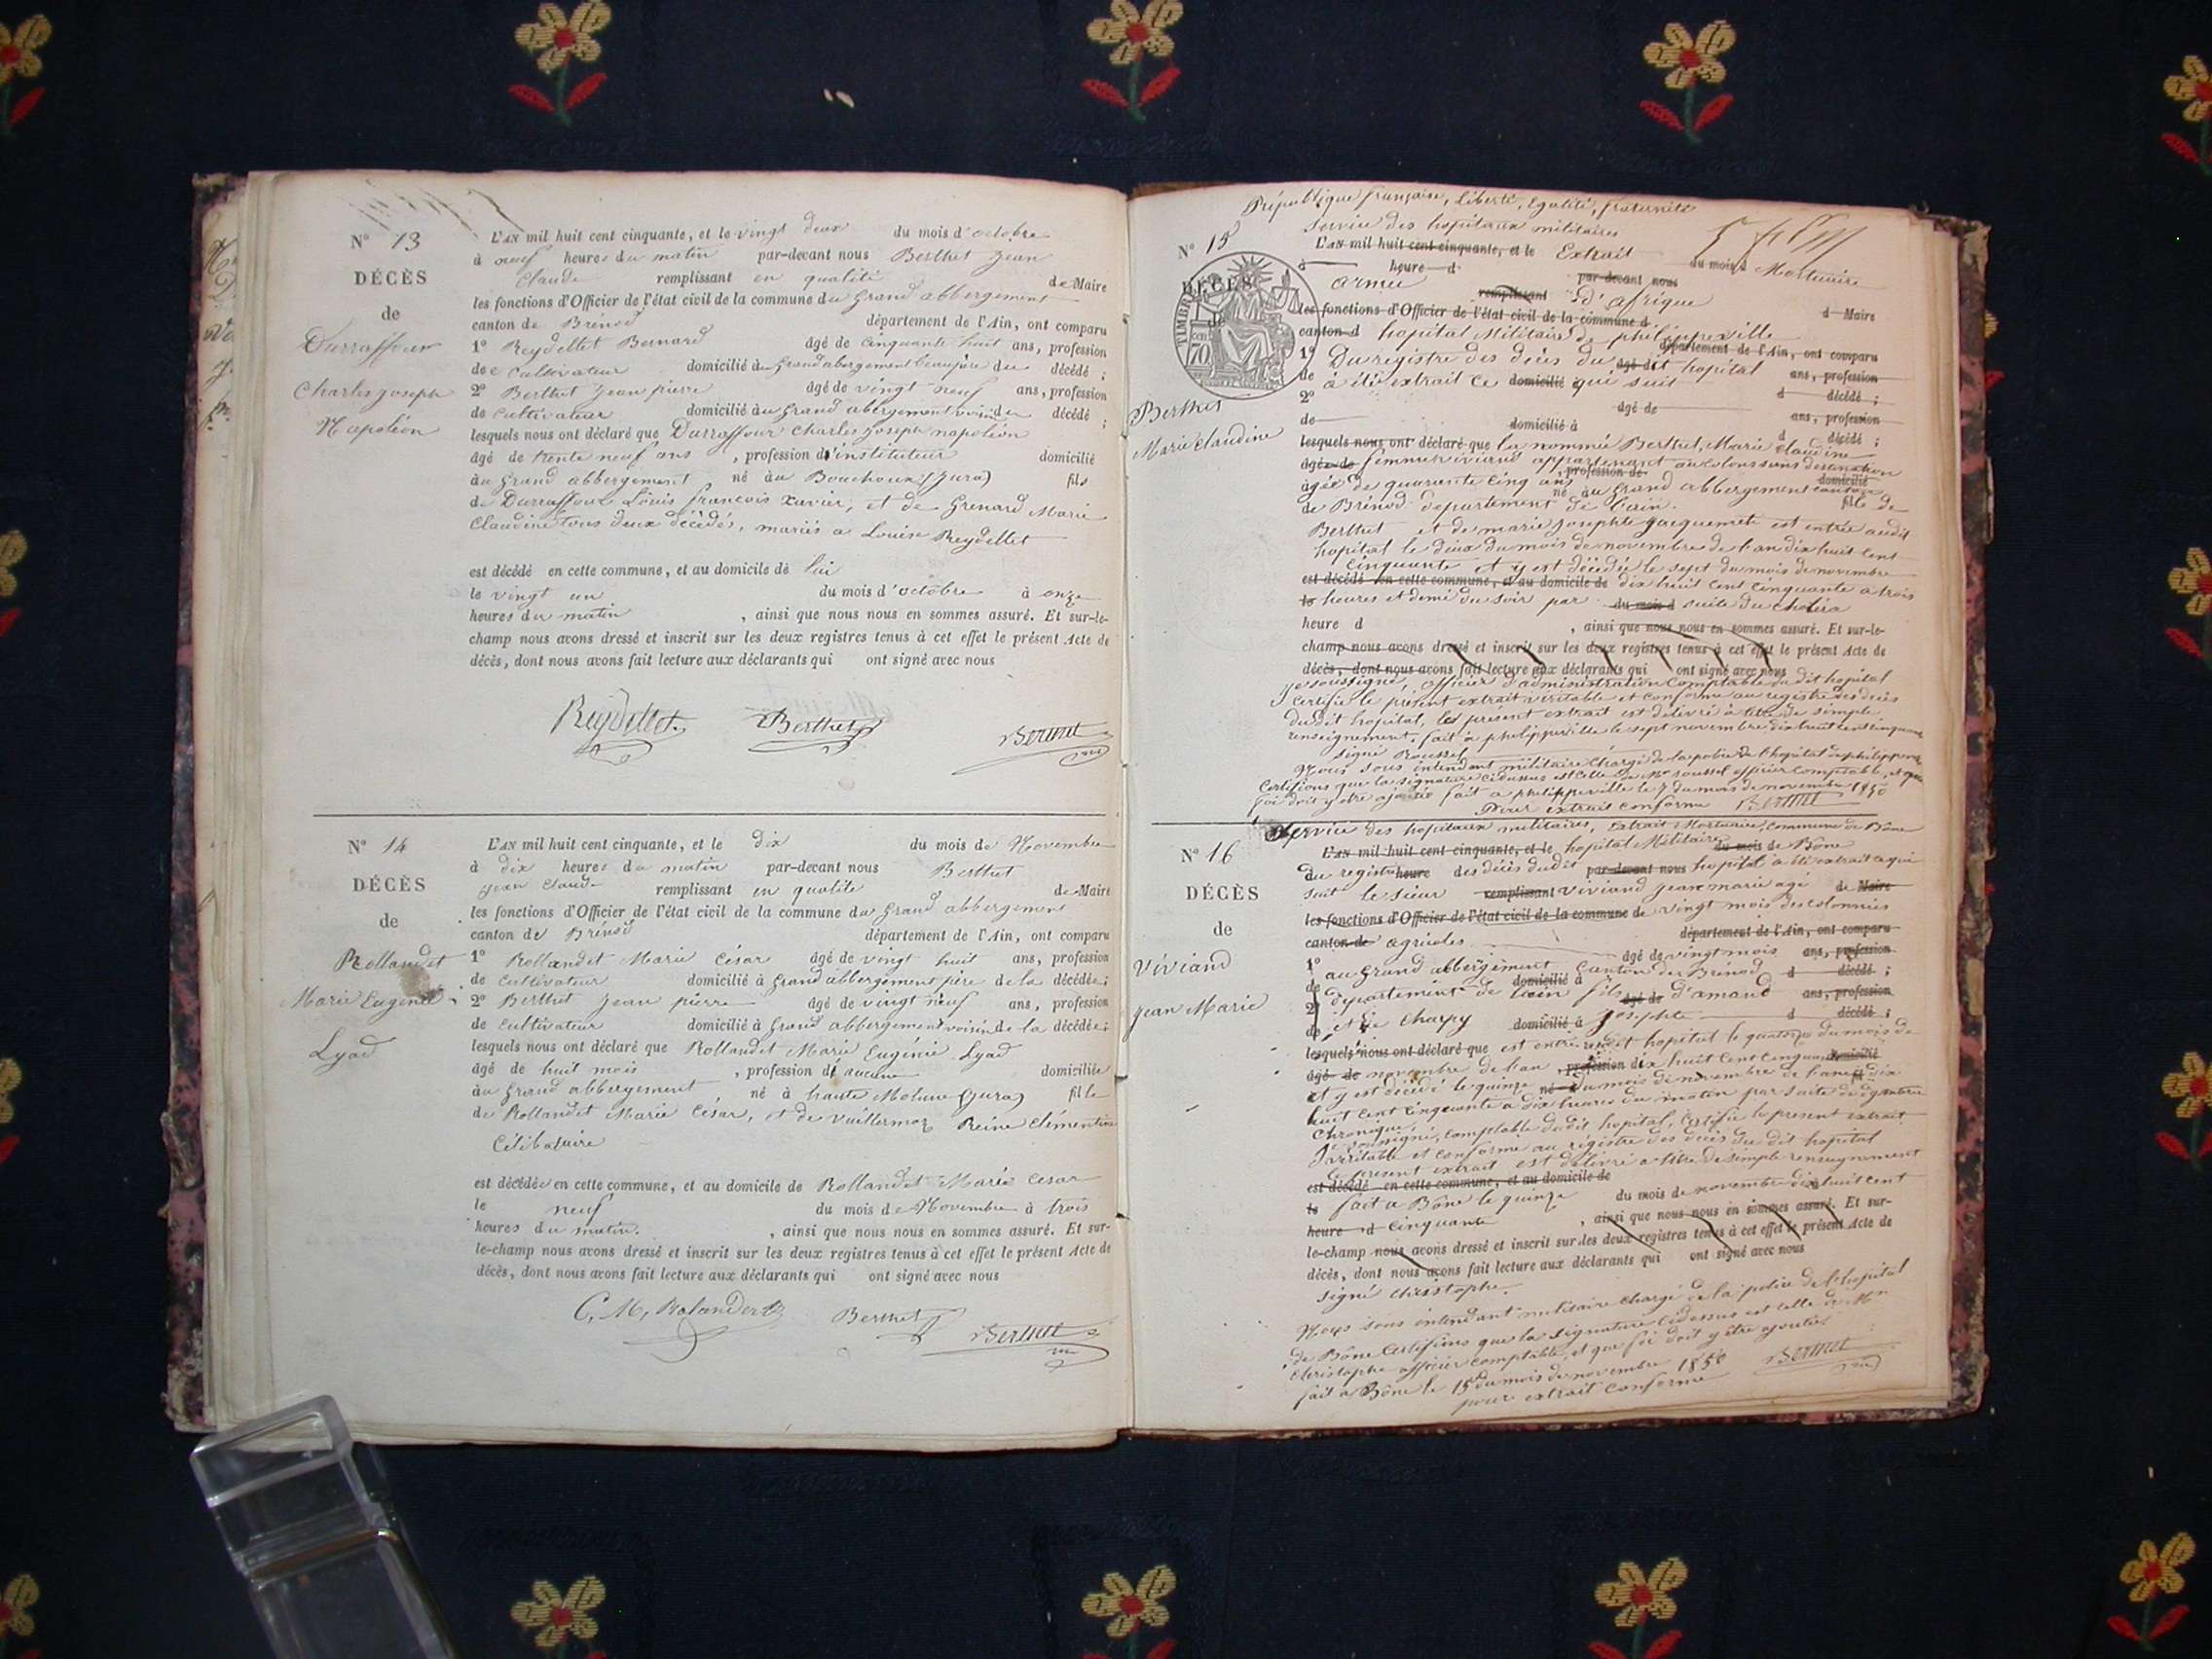 N° 13
DÉCÈS
de
Durraffour
Charles Joseph
Napoléon
L'AN mil huit cent cinquante, et le vingt deux du mois d'octobre
à neuf heures du matin par-devant nous Berthet Jean
Claude remplissant en qualité de Maire
les fonctions d'Officier de l'état civil de la commune du Grand abbergement
canton de Brénod département de l'Ain, ont comparu
1° Reydellet Bernard âgé de cinquante huit ans, profession
de cultivateur domicilié au Grand abergement beaupère du décédé ;
2° Berthet Jean pierre âgé de vingt neuf ans, profession
de cultivateur domicilié au Grand abergement voisin du décédé ;
lesquels nous ont déclaré que Durraffour Charles Joseph napoléon
âgé de trente neuf ans , profession d'instituteur domicilié
au Grand abbergement né au Bouchoux (Jura) fils
de Durraffour Louis françois Xavier, et de Grenard Marie
Claudine tous deux décédés, mariés a Louise Reydellet
est décédé en cette commune, et au domicile de lui
le vingt un du mois d'octobre à onze
heures du matin , ainsi que nous nous en sommes assuré. Et sur-le-
champ nous avons dressé et inscrit sur les deux registres tenus à cet effet le présent Acte de
décès, dont nous avons fait lecture aux déclarants qui ont signé avec nous
Reydellet Berthet Berthet
N° 14
DÉCÈS
de
Rollandet
Marie Eugénie
Lyad
L'AN mil huit cent cinquante, et le dix du mois de Novembre
à dix heures du matin par-devant nous Berthet
Jean Claude remplissant en qualité de Maire
les fonctions d'Officier de l'état civil de la commune du Grand abbergement
canton de Brénod département de l'Ain, ont comparu
1° Rollandet Marie César âgé de vingt huit ans, profession
de cultivateur domicilié à Grand abbergement père de la décédée ;
2° Berthet Jean pierre âgé de vingt neuf ans, profession
de cultivateur domicilié à Grand abbergement voisin de la décédée ;
lesquels nous ont déclaré que Rollandet Marie Eugénie Lyad
âgé de huit mois , profession d aucune domiciliée
au Grand abbergement né à haute Molune (Jura) fille
de Rollandet Marie César, et de Vuillermoz Reine Clémentine
Célibataire
est décédée en cette commune, et au domicile de Rollandet Marie Cesar
le neuf du mois de Novembre à trois
heures du matin. , ainsi que nous nous en sommes assuré. Et sur-
le-champ nous avons dressé et inscrit sur les deux registres tenus à cet effet le présent Acte de
décès, dont nous avons fait lecture aux déclarants qui ont signé avec nous
C. M, Rolandet Berthet Berthet
République française, Liberté, Egalité, fraternité
Service des hopitaux militaires
N° 15
DÉCÈS
de
TIMBRE
70
Berthet
Marie Claudine
L'AN mil huit cent cinquante, et le Extrait du mois d Mortuaire
à heure d armée par-devant nous
remplissant d'afrique
les fonctions d'Officier de l'état civil de la commune d d Maire
canton d hopital Militaire de philippeville
département de l'Ain, ont comparu
1° Du registre des décès du dit hopital ans, profession
de à été extrait ce domicilié qui suit d décédé ;
2° âgé de ans, profession
de domicilié à d décédé ;
lesquels nous ont déclaré que la nommée Berthet, Marie Claudine
âgé de femme viviand appartenant aux colons sans destination
agée de quarante cinq ans profession de domicilié
né au Grand abbergement canton
de Brénod departement de l'ain. fille de
Berthet et de marie Josephte Jacquemet est entrée audit
hopital le deux du mois de novembre de l'an dix huit cent
cinquante et y est décédée le sept du mois de novembre
est décédé en cette commune, et au domicile de dix huit cent cinquante a trois
le heures et demi du soir par du mois d suite du choléra
heure d , ainsi que nous nous en sommes assuré. Et sur-le-
champ nous avons dressé et inscrit sur les deux registres tenus à cet effet le présent Acte de
décès, dont nous avons fait lecture aux déclarants qui ont signé avec nous
Je soussigné, officier d'administration Comptable du dit hopital
Certifie le présent extrait véritable et conforme au registre des décès
dudit hopital, le présent extrait est délivré à titre de simple
renseignement, fait à philippeville le sept novembre dix huit cent cinquante
signé Roussel
Nous sous intendant militaire chargé de la police de l'hopital de philippeville
Certifions que la signature cidessus est celle de Mr roussel officier comptable, et que
foi doit y être ajoutée fait a philippeville le 7 du mois de novembre 1850
Pour extrait conforme Berthet
Service des hopitaux militaires, Extrait Mortuaire, Commune de Bône
N° 16
DÉCÈS
de
Viviand
Jean Marie
L'AN mil huit cent cinquante, et le hopital Militaire du mois de Bône
du registre heure des décès dudit par-devant nous hopital a été extrait ce qui
suit le sieur remplissant viviand Jean marie agé de Maire
les fonctions d'Officier de l'état civil de la commune de vingt mois des colonnies
canton de agricoles département de l'Ain, ont comparu
1° âgé de vingt mois ans, profession
de au Grand abbergement domicilié à Canton de Brénod d décédé ;
2° departement de l'ain fils âgé de d'amand ans, profession
de et de Charpy domicilié à Josephte d décédé ;
lesquels nous ont déclaré que est entré audit hopital le quatorze du mois de
âgé de novembre de l'an profession dix huit cent cinquante domicilié
et y est décédé le quinze né du mois de novembre de l'an dix
huit cent cinquante a dix heures du matin par suite de
Chronique,
Je soussigné, comptable du dit hopital, Certifie le présent extrait
véritable et conforme au régistre des décès du dit hopital
Le présent extrait est délivré a titre de simple renseignement
est décédé en cette commune, et au domicile de
le fait a Bône le quinze du mois de novembre dix huit cent
heure d cinquante , ainsi que nous nous en sommes assuré. Et sur-
le-champ nous avons dressé et inscrit sur les deux registres tenus à cet effet le présent Acte de
décès, dont nous avons fait lecture aux déclarants qui ont signé avec nous
signé christophe.
Nous sous intendant militaire chargé de la police de l'hopital
de Bône Certifions que la signature cidessus est celle de Mr
Christophe officier comptable, et que foi doit y être ajoutée
fait a Bône le 15 du mois de novembre 1850 Berthet
pour extrait conforme